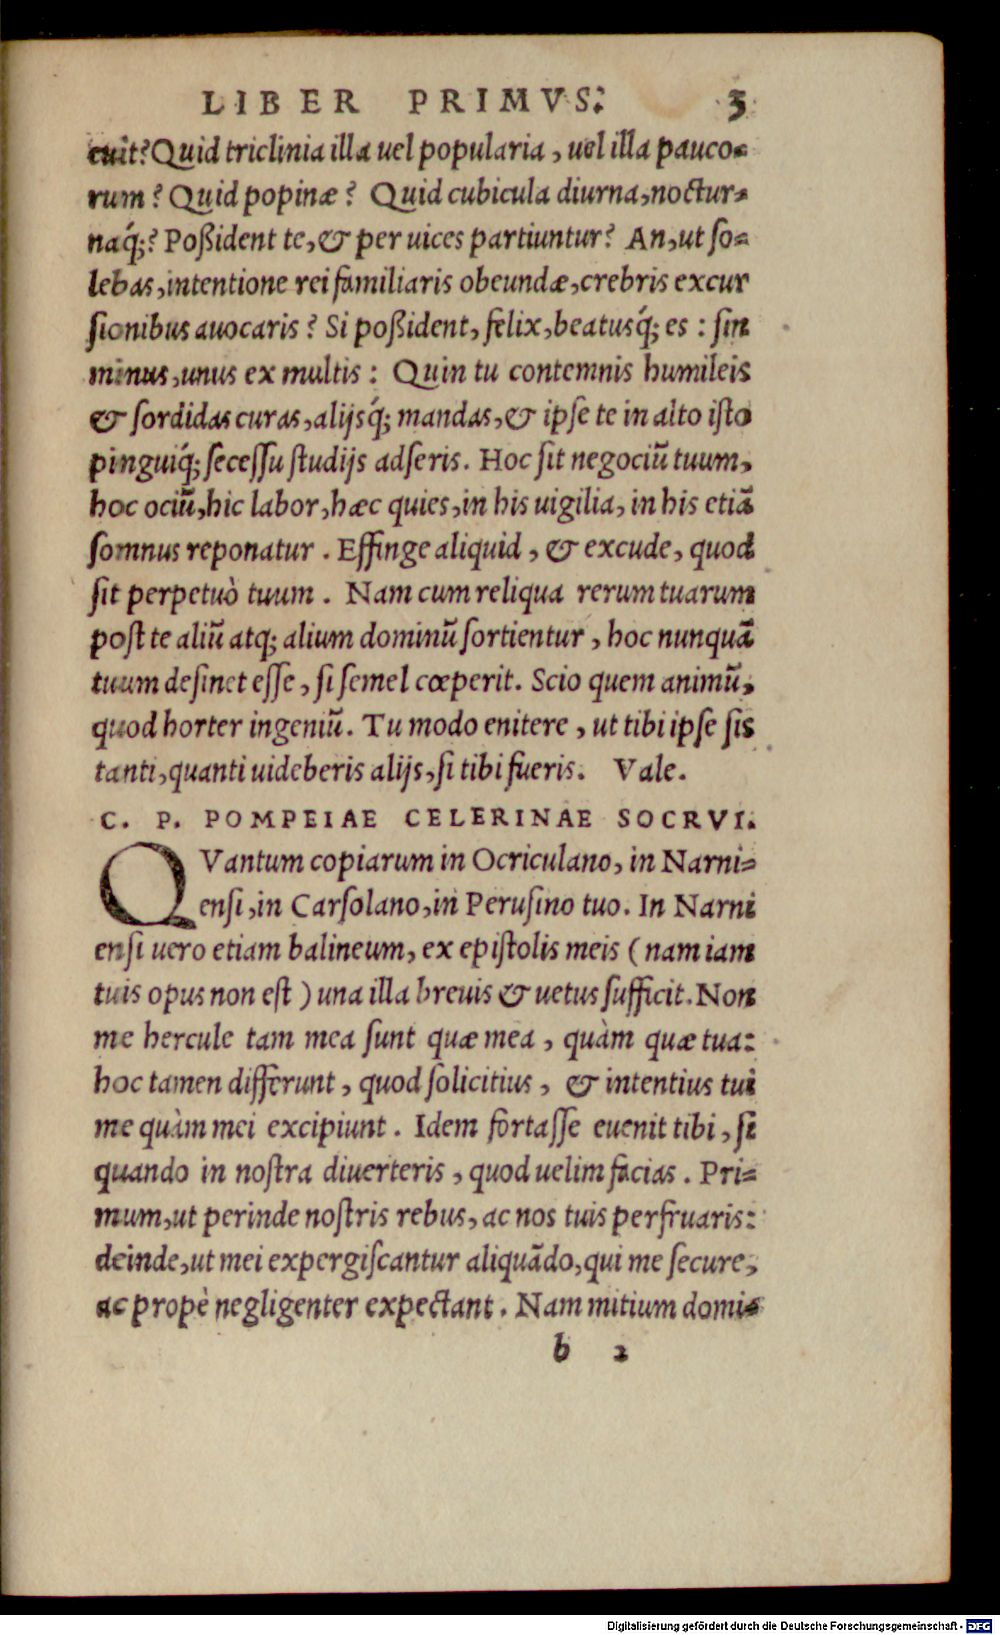 LIBER PRIMVS. 3
cuit? Quid triclinia illa uel popularia, uel illa pauco-
rum? Quid popinæ? Quid cubicula diurna, noctur-
naq́;? Poßident te, & per uices partiuntur? An, ut ſo-
lebas, intentione rei familiaris obeundæ, crebris excur
ſionibus auocaris? Si poßident, felix, beatusq́; es: ſin
minus, unus ex multis: Quin tu contemnis humileis
& ſordidas curas, alijsq́; mandas, & ipſe te in alto iſto
pinguiq́; ſeceſſu ſtudijs adſeris. Hoc ſit negociũ tuum,
hoc ociũ, hic labor, hæc quies, in his uigilia, in his etiã
ſomnus reponatur. Effinge aliquid, & excude, quod
ſit perpetuò tuum. Nam cum reliqua rerum tuarum
poſt te aliũ atq; alium dominũ ſortientur, hoc nunquã
tuum deſinet eſſe, ſi ſemel cœperit. Scio quem animũ,
quod horter ingeniũ. Tu modo enitere, ut tibi ipſe ſis
tanti, quanti uideberis alijs, ſi tibi fueris. Vale.
C. P. POMPEIAE CELERINAE SOCRVI.
QVantum copiarum in Ocriculano, in Narni-
enſi, in Carſolano, in Peruſino tuo. In Narni
enſi uero etiam balineum, ex epiſtolis meis (nam iam
tuis opus non eſt) una illa breuis & uetus ſufficit. Non
me hercule tam mea ſunt quæ mea, quàm quæ tua:
hoc tamen differunt, quod ſolicitius, & intentius tui
me quàm mei excipiunt. Idem fortaſſe euenit tibi, ſi
quando in noſtra diuerteris, quod uelim facias. Pri-
mum, ut perinde noſtris rebus, ac nos tuis perfruaris:
deinde, ut mei expergiſcantur aliquãdo, qui me ſecure,
ac propè negligenter expectant. Nam mitium domi-
b 2
Digitalisierung gefördert durch die Deutsche Forschungsgemeinschaft - DFG